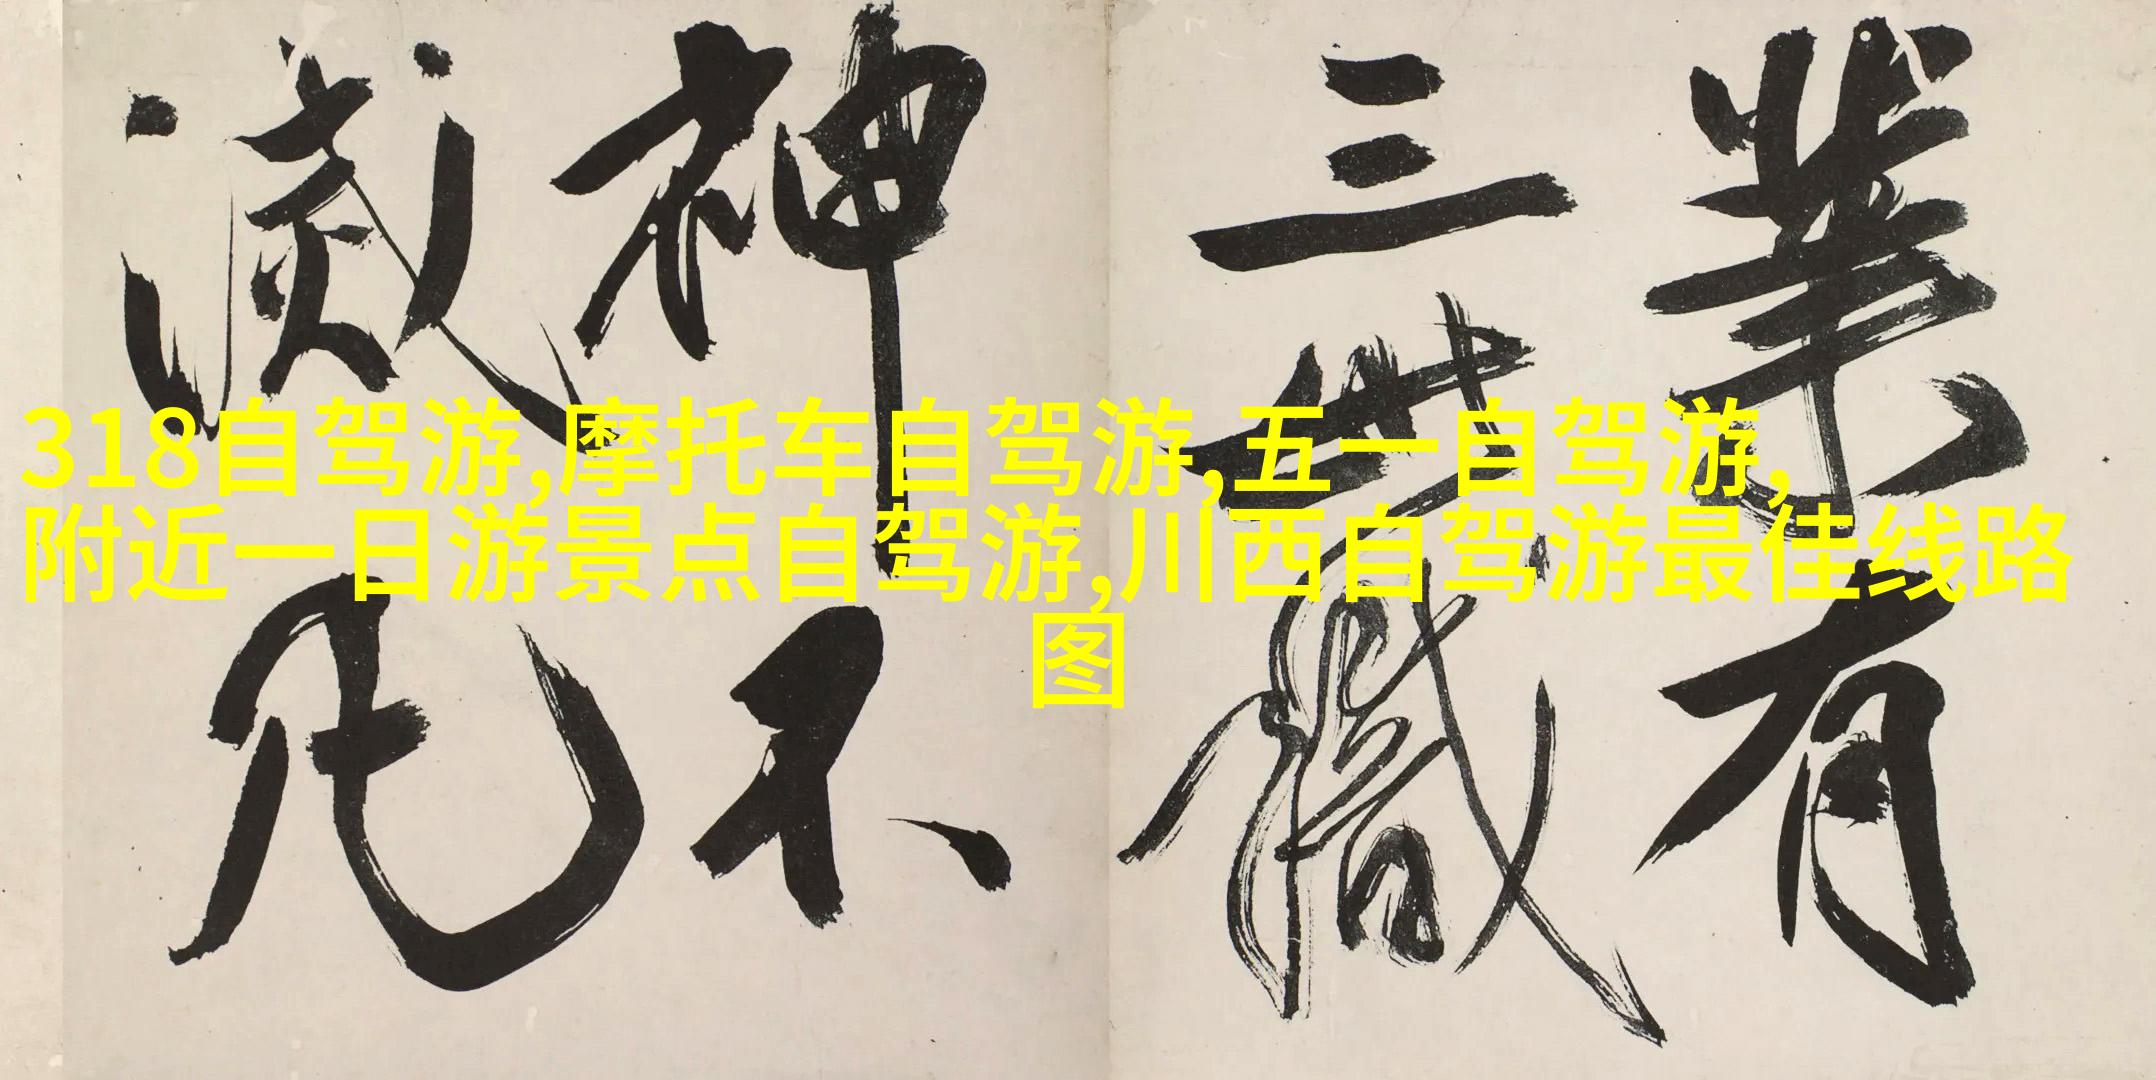 業有
三世識
神不
滅凡
318自驾游,摩托车自驾游,五一自驾游,
附近一日游景点自驾游,川西自驾游最佳线路
图